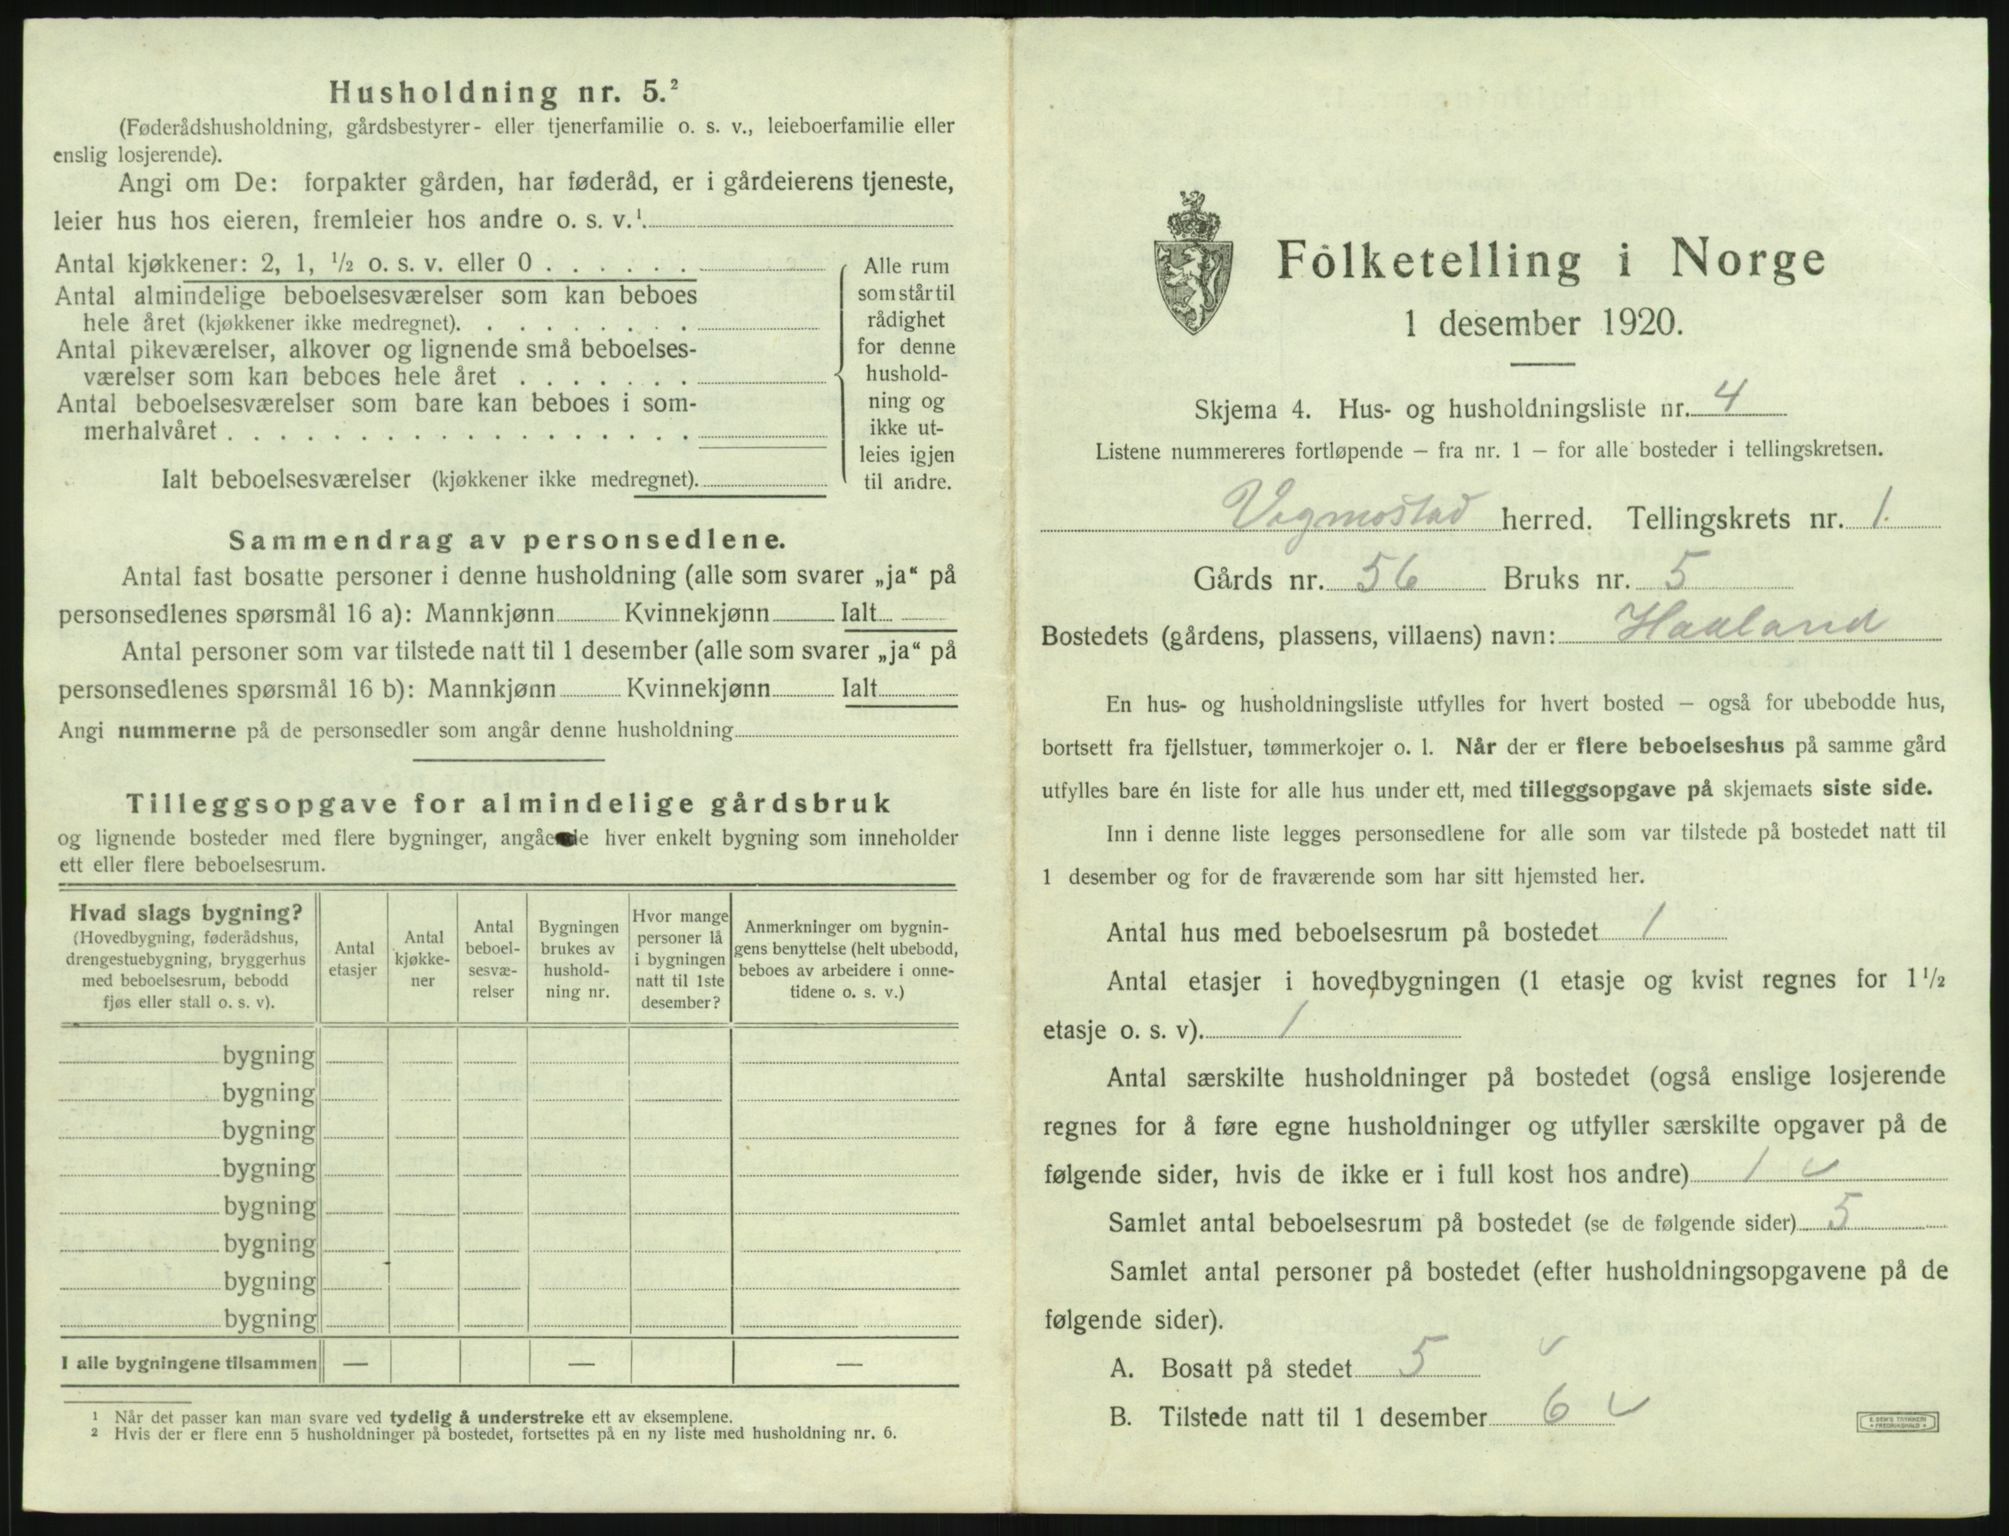 Husholdning nr. 5.²
(Føderådshusholdning, gårdsbestyrer- eller tjenerfamilie o. s. v., leieboerfamilie eller
enslig losjerende).
Angi om De: forpakter gården, har føderåd, er i gårdeierens tjeneste,
leier hus hos eieren, fremleier hos andre o. s. v.¹
Antal kjøkkener: 2, 1, ½ o. s. v. eller 0 . . . . . .
Antal almindelige beboelsesværelser som kan beboes
hele året (kjøkkener ikke medregnet). . . . . . . . .
Antal pikeværelser, alkover og lignende små beboelses-
værelser som kan beboes hele året . . . . . . .
Antal beboelsesværelser som bare kan beboes i som-
merhalvåret . . . . . . . . . . . . . . . . . .
Ialt beboelsesværelser (kjøkkener ikke medregnet).
Alle rum
som står til
rådighet
for denne
hushold-
ning og
ikke ut-
leies igjen
til andre.
Sammendrag av personsedlene.
Antal fast bosatte personer i denne husholdning (alle som svarer „ja“ på
personsedlenes spørsmål 16 a): Mannkjønn Kvinnekjønn Ialt
Antal personer som var tilstede natt til 1 desember (alle som svarer „ja“ på
personsedlenes spørsmål 16 b): Mannkjønn Kvinnekjønn Ialt
Angi nummerne på de personsedler som angår denne husholdning
Tilleggsopgave for almindelige gårdsbruk
og lignende bosteder med flere bygninger, angående hver enkelt bygning som inneholder
ett eller flere beboelsesrum.
Hvad slags bygning?
(Hovedbygning, føderådshus,
drengestuebygning, bryggerhus
med beboelsesrum, bebodd
fjøs eller stall o. s. v).
Antal
etasjer
Antal
kjøkke-
ner
Antal
beboel-
sesvæ-
relser
Bygningen
brukes av
hushold-
ning nr.
Hvor mange
personer lå
i bygningen
natt til 1ste
desember?
Anmerkninger om bygnin-
gens benyttelse (helt ubebodd,
beboes av arbeidere i onne-
tidene o. s. v.)
bygning
bygning
bygning
bygning
bygning
bygning
bygning
bygning
I alle bygningene tilsammen — — —
¹ Når det passer kan man svare ved tydelig å understreke ett av eksemplene.
² Hvis der er flere enn 5 husholdninger på bostedet, fortsettes på en ny liste med husholdning nr. 6.
Folketelling i Norge
1 desember 1920.
Skjema 4. Hus- og husholdningsliste nr. 4
Listene nummereres fortløpende — fra nr. 1 — for alle bosteder i tellingskretsen.
Vegmostad herred. Tellingskrets nr. 1.
Gårds nr. 56 Bruks nr. 5
Bostedets (gårdens, plassens, villaens) navn: Haaland
En hus- og husholdningsliste utfylles for hvert bosted — også for ubebodde hus,
bortsett fra fjellstuer, tømmerkojer o. l. Når der er flere beboelseshus på samme gård
utfylles bare én liste for alle hus under ett, med tilleggsopgave på skjemaets siste side.
Inn i denne liste legges personsedlene for alle som var tilstede på bostedet natt til
1 desember og for de fraværende som har sitt hjemsted her.
Antal hus med beboelsesrum på bostedet 1
Antal etasjer i hovedbygningen (1 etasje og kvist regnes for 1½
etasje o. s. v). 1
Antal særskilte husholdninger på bostedet (også enslige losjerende
regnes for å føre egne husholdninger og utfyller særskilte opgaver på de
følgende sider, hvis de ikke er i full kost hos andre) 1
Samlet antal beboelsesrum på bostedet (se de følgende sider) 5
Samlet antal personer på bostedet (efter husholdningsopgavene på de
følgende sider).
A. Bosatt på stedet 5
B. Tilstede natt til 1 desember 6